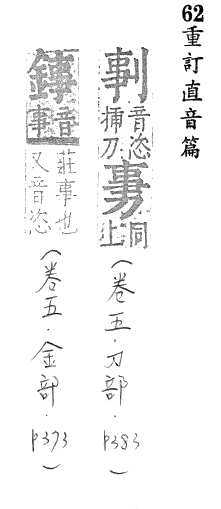 62重訂直音篇
剚音恣揷刀同上(卷五.刀部.p383)
音事莊事也又音恣(卷五.金部.p373)